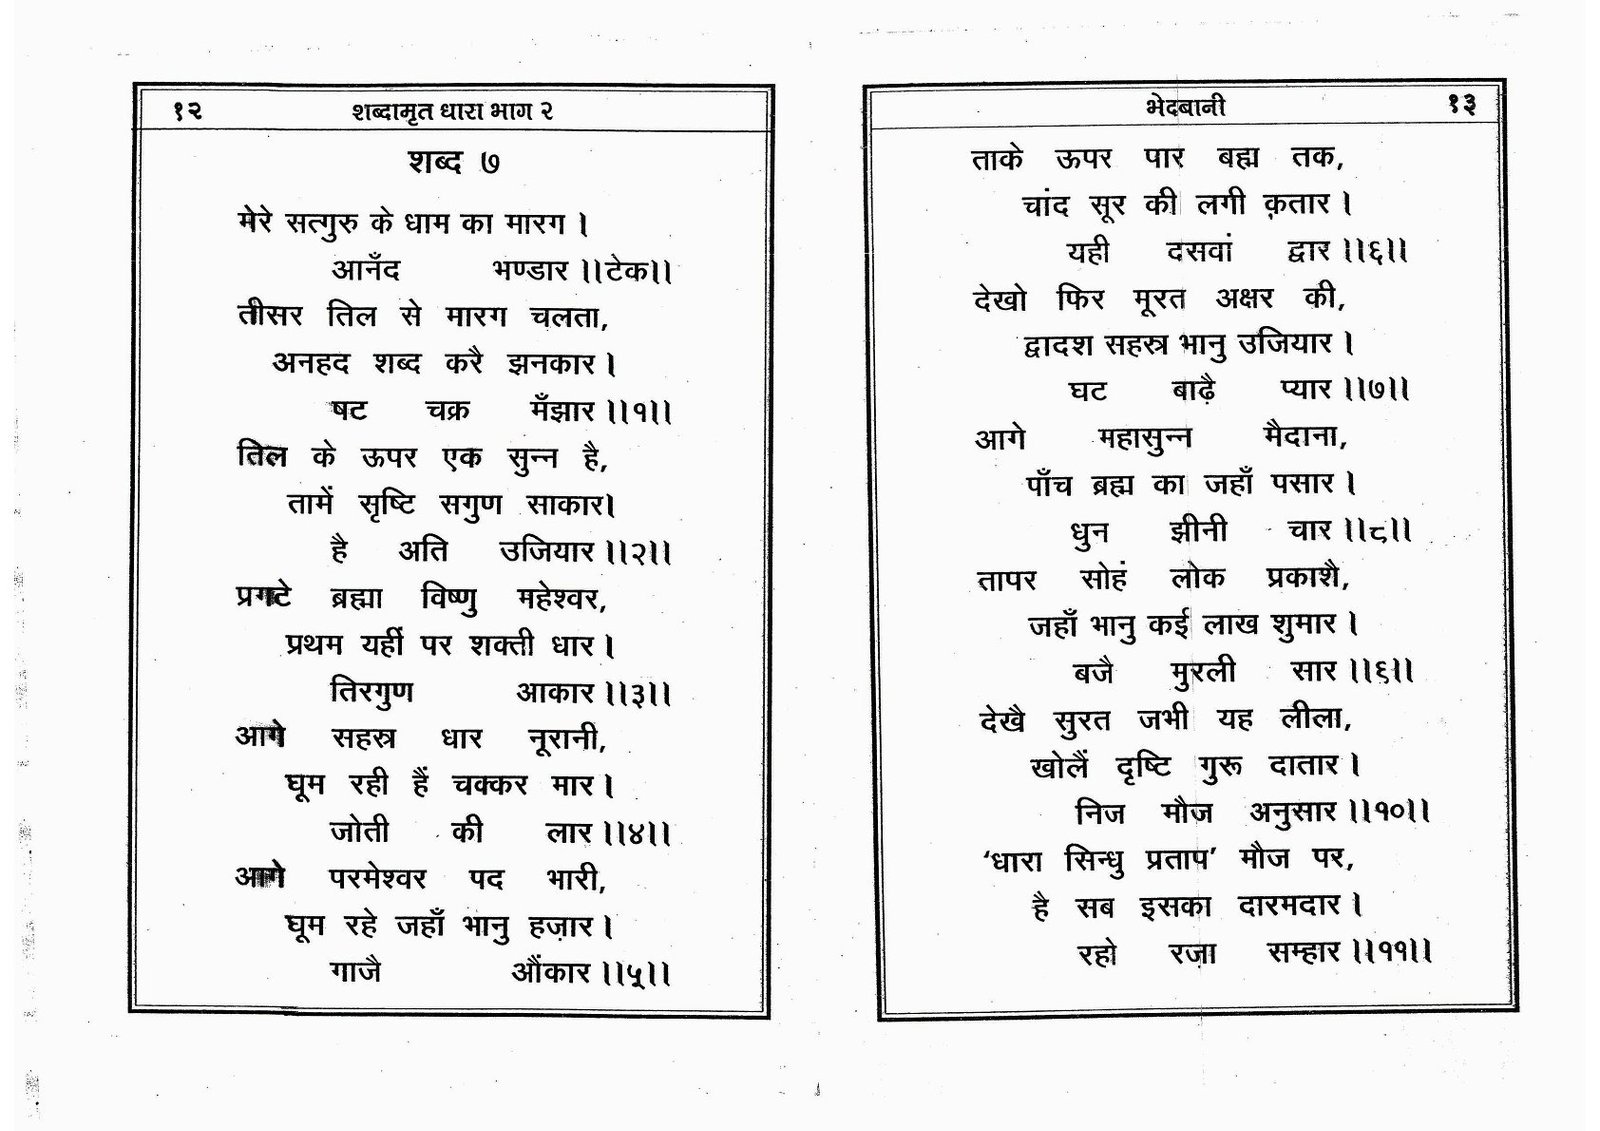 १२ शब्दामृत धारा भाग २
शब्द ७
मेरे सत्गुरु के धाम का मारग ।
आनँद भण्डार ।।टेक।।
तीसर तिल से मारग चलता,
अनहद शब्द करै झनकार ।
षट चक्र मँझार ।।१।।
तिल के ऊपर एक सुन्न है,
तामें सृष्टि सगुण साकार।
है अति उजियार ।।२।।
प्रगटे ब्रह्मा विष्णु महेश्वर,
प्रथम यहीं पर शक्ती धार ।
तिरगुण आकार ।।३।।
आगे सहस्र धार नूरानी,
घूम रही हैं चक्कर मार ।
जोती की लार ।।४।।
आगे परमेश्वर पद भारी,
घूम रहे जहाँ भानु हज़ार ।
गाजै औंकार ।।५।।
भेदबानी १३
ताके ऊपर पार बह्म तक,
चांद सूर की लगी क़तार ।
यही दसवां द्वार ।।६।।
देखो फिर मूरत अक्षर की,
द्वादश सहस्र भानु उजियार ।
घट बाढ़ै प्यार ।।७।।
आगे महासुन्न मैदाना,
पाँच ब्रह्म का जहाँ पसार ।
धुन झीनी चार ।।८।।
तापर सोहं लोक प्रकाशै,
जहाँ भानु कई लाख शुमार ।
बजै मुरली सार ।।९।।
देखै सुरत जभी यह लीला,
खोलैं दृष्टि गुरू दातार ।
निज मौज अनुसार ।।१०।।
‘धारा सिन्धु प्रताप’ मौज पर,
है सब इसका दारमदार ।
रहो रज़ा सम्हार ।।११।।